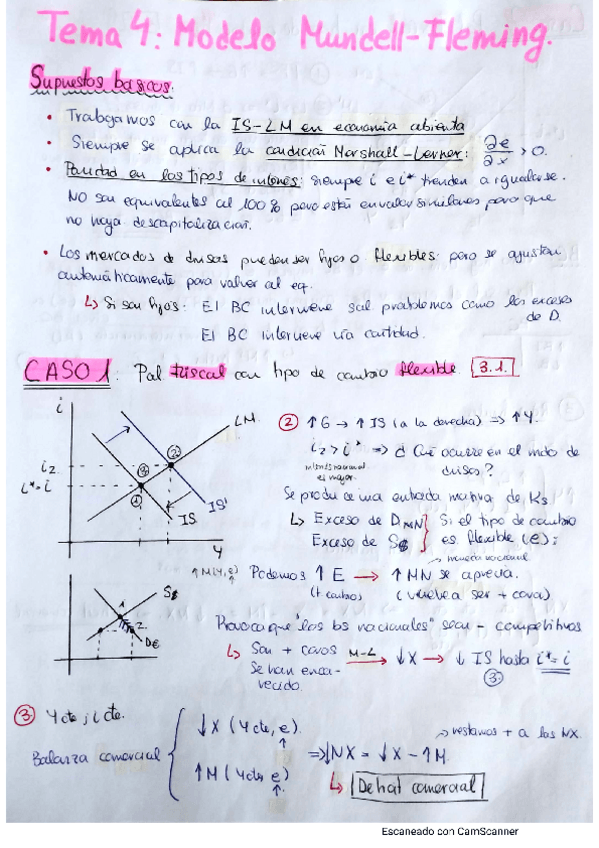 Tema 4: Modelo Mundell-Fleming.
Supuestos básicos.
• Trabajamos con la IS-LM en economía abierta
• Siempre se aplica la condición Marshall-Lerner: ∂e/∂x > 0.
• Paridad en los tipos de interés: siempre i e i* tienden a igualarse.
No son equivalentes al 100% pero están en valor similares para que
no haya descapitalización.
• Los mercados de divisas pueden ser fijos o flexibles: pero se ajustan
automáticamente para volver al eq.
↳ Si son fijos: El BC interviene problemas como los excesos
de D.
El BC interviene vía cantidad.
CASO 1: Pol fiscal con tipo de cambio flexible 3.1.
i
LM
i2
i*=i
3
2
1
IS
IS'
Y
② ↑G → ↑IS (a la derecha) ⇒ ↑Y.
i2 > i* ⇒ ¿Qué ocurre en el mdo de
interés nacional
es mayor.
divisas?
Se produce una entrada masiva de Ks
↳ Exceso de DMN } Si el tipo de cambio
Exceso de S$ } es flexible (e):
moneda nacional
↑M(Y,e)
Podemos ↑E → ↑MN se aprecia.
(t cambio) (vuelve a ser + cara)
S$
1
2
D€
Provoca que los bs nacionales sean - competitivos
↳ Son + caros M-L → ↓X → ↓IS hasta i*=i
Se han enca-
recido.
3
③ Y cte, i cte.
Balanza comercial { ↓X (Ycte, e).
↑M (Ycte, e)
⇒ ↓NX = ↓X - ↑M.
→ restamos + a las NX.
↳ Déficit comercial
Escaneado con CamScanner